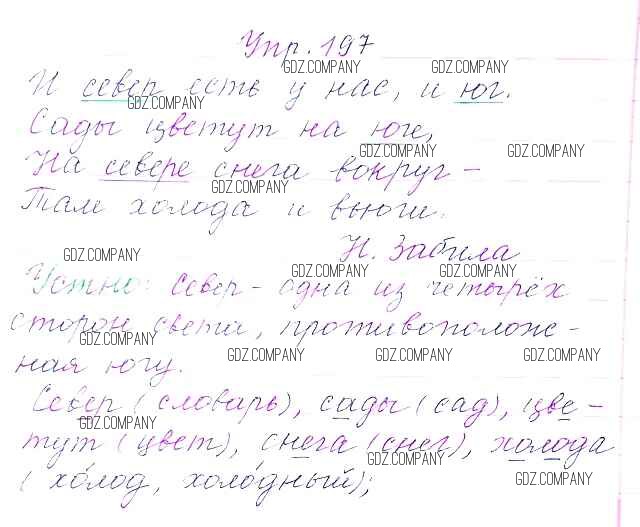 Упр. 197
GDZ.COMPANY GDZ.COMPANY
И север есть у нас, и юг.
GDZ.COMPANY
Сады цветут на юге,
GDZ.COMPANY GDZ.COMPANY
На севере снега вокруг –
GDZ.COMPANY
Там холода и вьюги.
Н. Забила
GDZ.COMPANY
GDZ.COMPANY GDZ.COMPANY
Устно: север – одна из четырёх
сторон света, противополож-
GDZ.COMPANY
GDZ.COMPANY GDZ.COMPANY GDZ.COMPANY
ная югу.
Север (словарь), сады (сад), цве-
GDZ.COMPANY
тут (цвет), снега (снег), холода
GDZ.COMPANY
(холод, холодный);
GDZ.COMPANY